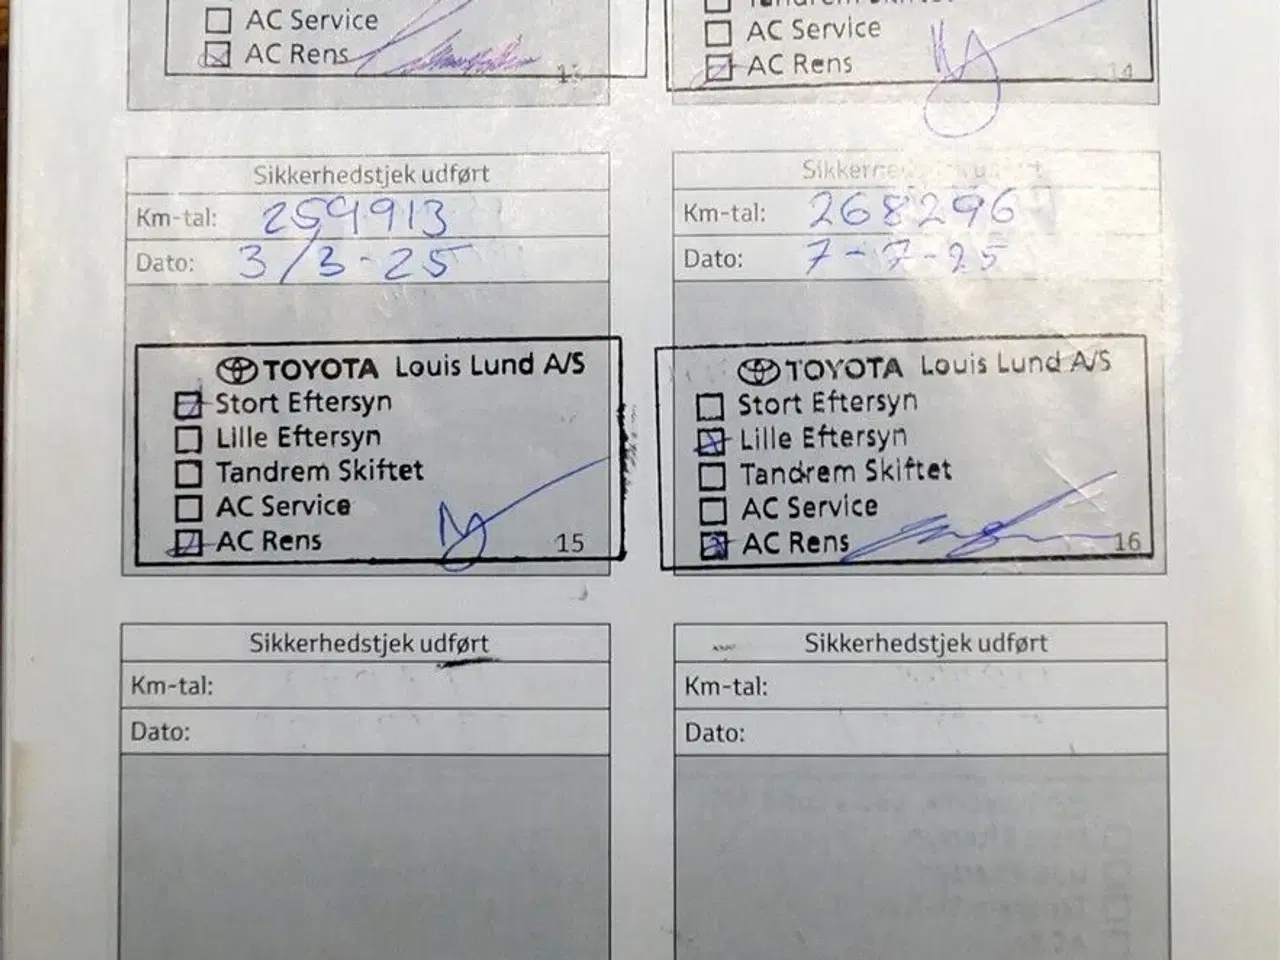 AC Service
AC Rens
13
AC Service
AC Rens
14
Sikkerhedstjek udført
Km-tal: 259913
Dato: 3/3-25
TOYOTA Louis Lund A/S
Stort Eftersyn
Lille Eftersyn
Tandrem Skiftet
AC Service
AC Rens
15
Sikkerhedstjek udført
Km-tal: 268296
Dato: 7-7-25
TOYOTA Louis Lund A/S
Stort Eftersyn
Lille Eftersyn
Tandrem Skiftet
AC Service
AC Rens
16
Sikkerhedstjek udført
Km-tal:
Dato:
Sikkerhedstjek udført
Km-tal:
Dato: